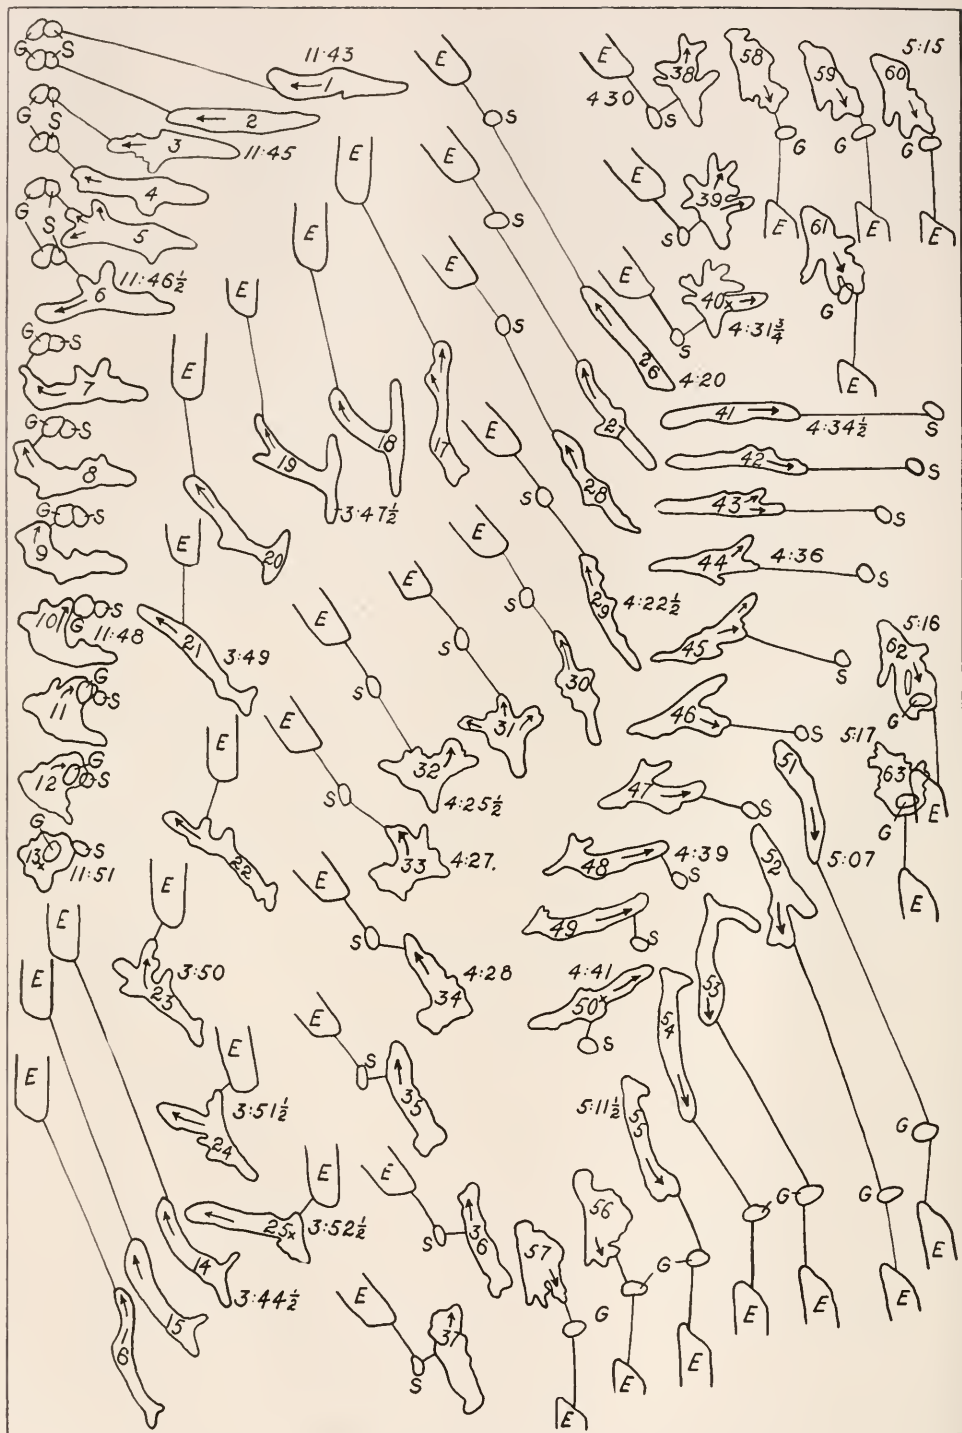 G S
11:43
1
2
G S
3
11:45
4
G S
5
11:46½
6
G S
7
G S
8
G S
9
10
G S
11:48
11
G S
12
G S
13x
G S
11:51
E
14
3:44½
E
15
E
6
E
17
E
18
E
19
3:47½
E
20
E
21
3:49
E
22
E
23
3:50
E
24
3:51½
E
25x
3:52½
E
S
26
4:20
E
S
27
E
S
28
E
S
29
4:22½
E
S
30
E
S
31
E
S
32
4:25½
E
S
33
4:27.
E
S
34
4:28
E
S
35
E
S
36
E
S
37
E
4 30
S
38
E
S
39
E
S
40x
4:31¾
41
4:34½
S
42
S
43
S
44
4:36
S
45
S
46
S
47
S
48
4:39
S
49
S
4:41
50x
S
51
5:07
G
E
52
G
E
53
G
E
54
E
5:11½
55
G
E
56
E
57
G
E
58
G
E
59
G
E
5:15
60
G
E
61
G
E
5:16
62
G
E
5:17
63
G
E